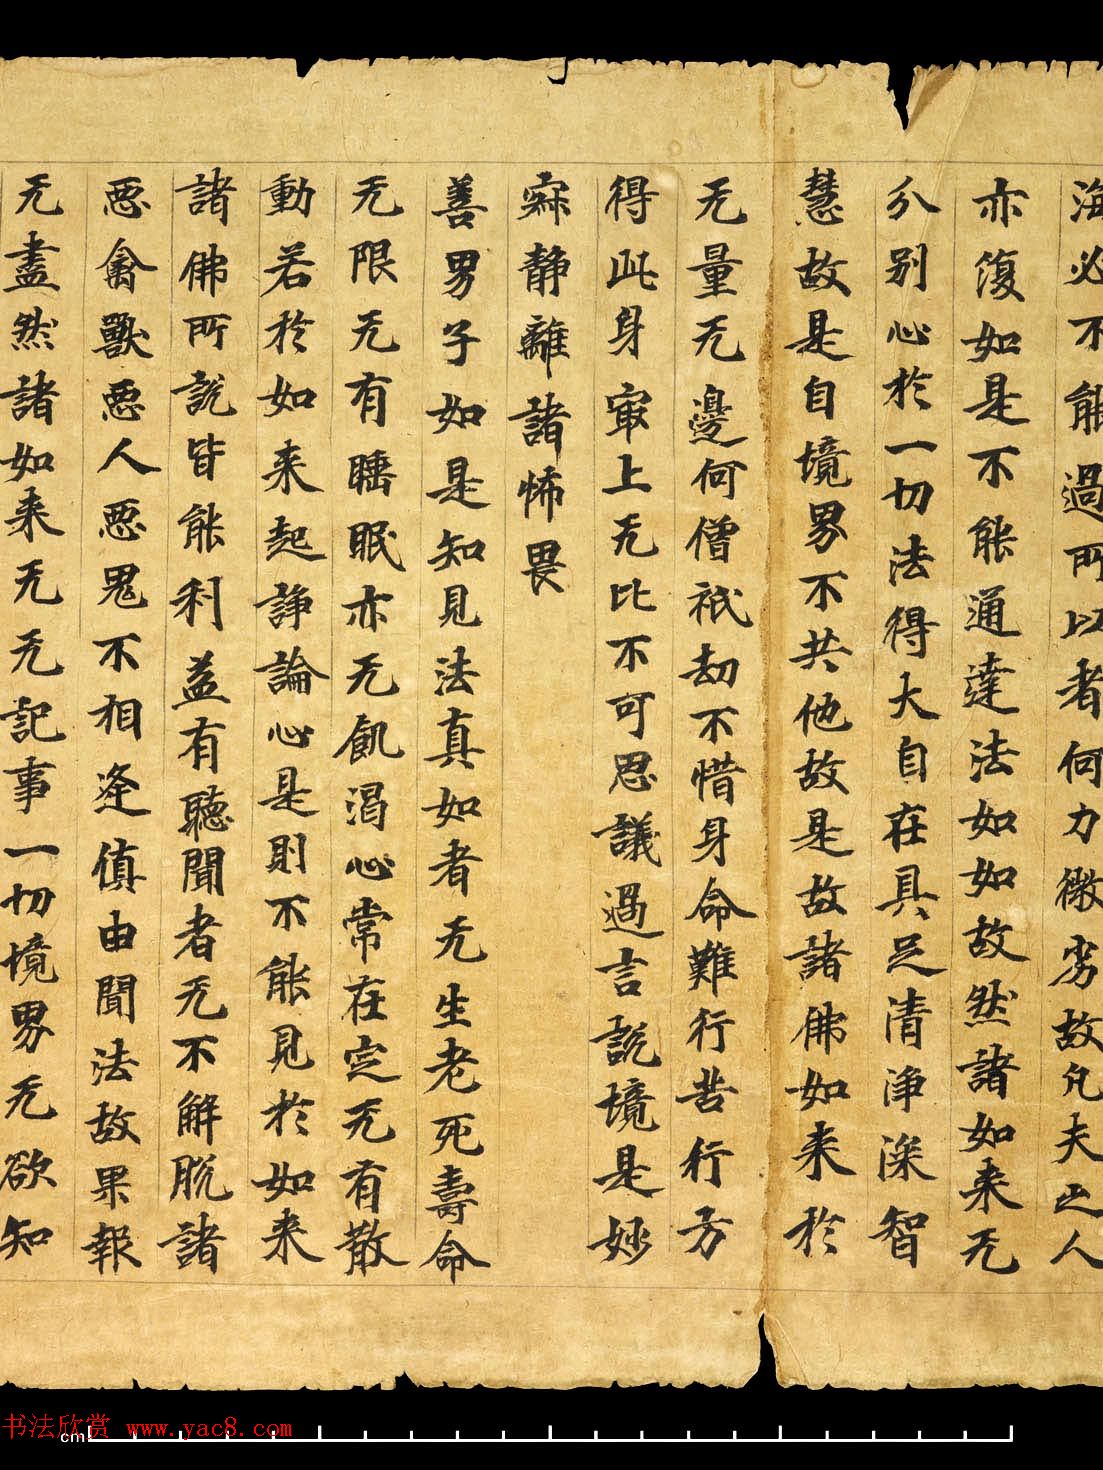 海必不能過所以者何力微劣故凡夫之人
亦復如是不能通達法如如故然諸如来无
分别心於一切法得大自在具足清淨深智
慧故是自境界不共他故是故諸佛如来於
无量无邊阿僧祇劫不惜身命難行苦行方
得此身冣上无比不可思議過言說境是妙
寂静離諸怖畏
善男子如是知見法真如者无生老死壽命
无限无有睡眠亦无飢渴心常在定无有散
動若於如来起諍論心是則不能見於如来
諸佛所說皆能利益有聽聞者无不解脱諸
惡禽獸惡人惡鬼不相逢值由聞法故果報
无盡然諸如来无无記事一切境界无欲知
书法欣赏 www.yac8.com
cm